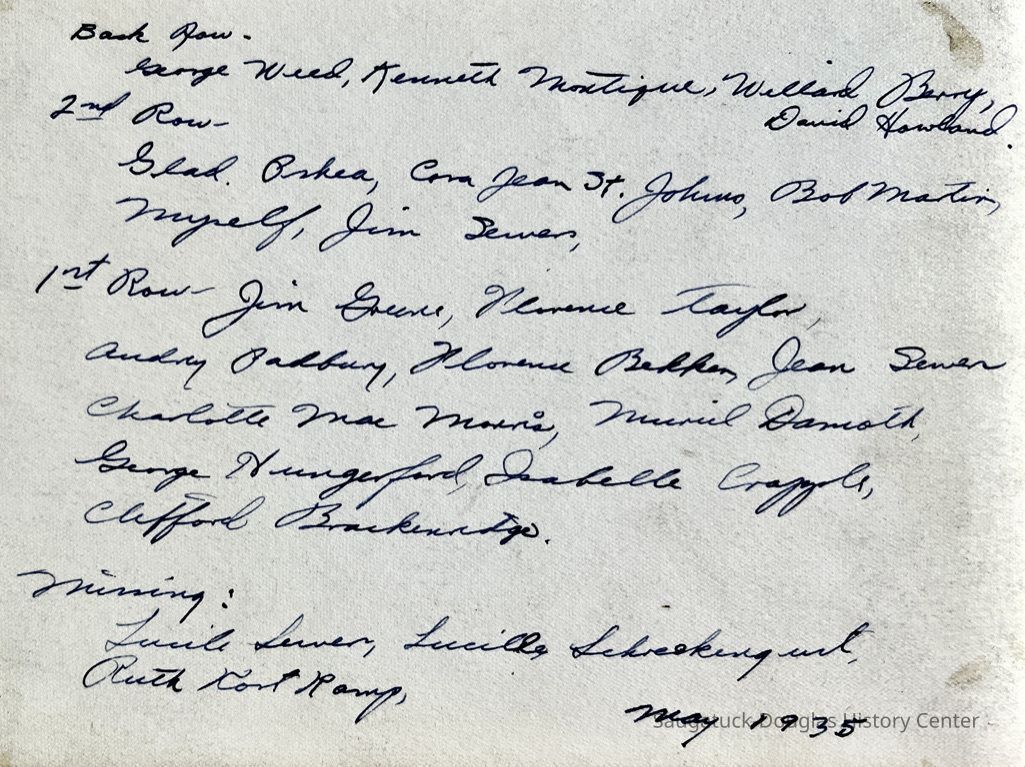 Back Row-
George Weed, Kenneth Montique, Willard Berry,
David Howland.
2nd Row-
Glad. Oshea, Cora Jean St. Johns, Bob Martin,
Myself, Jim Sewers,
1rst Row- Jim Greene, Florence Taylor,
Audry Padbury, Florence Bekken, Jean Sewers
Charlotte Mac Morris, Muriel Damoth,
George Hungerford, Isabelle Crapple,
Clifford Brackenridge.
Missing:
Lucile Sewers, Lucille Schreckengust,
Ruth Kort Kamp,
May 1935
Saugatuck Douglas History Center